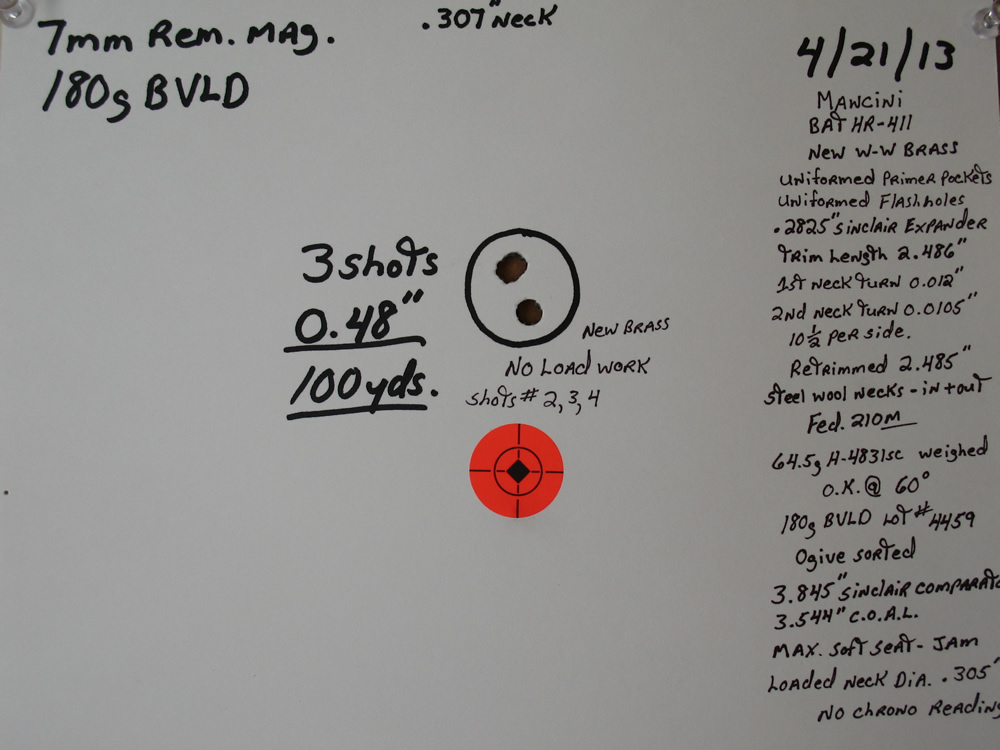 7mm Rem. MAg.
180g BVLD
.307" Neck
3 shots
0.48"
100 yds.
New BRASS
No Load work
shots # 2, 3, 4
4/21/13
MANCiNi
BAT HR-411
New W-W BRASS
UNiformed Primer Pockets
UNiformed Flashholes
.2825" SiNclAiR ExpANder
TRim Length 2.486"
1st Neck TURN 0.012"
2nd Neck TURN 0.0105"
10 1/2 PeR side.
ReTRimmed 2.485"
Steel wool Necks - in + out
Fed. 210M
64.5g H-4831sc weighed
O.K. @ 60°
180g BVLD LoT # 4459
Ogive soRTed
3.845" SiNclAiR
3.544" C.O.A.L.
MAX. Soft SeAT - JAm
LoAded Neck DiA. .305"
No chRoNo